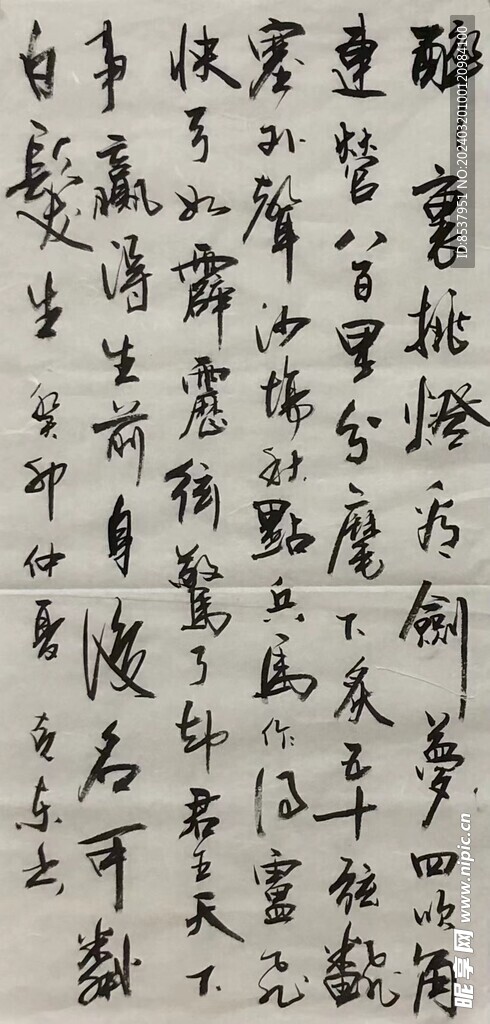 醉裏挑燈看劍夢回吹角
連營八百里分麾下炙五十弦飜
塞外聲沙場秋點兵馬作的盧飛
快弓如霹靂弦驚了却君王天下
事贏得生前身後名可憐
白髮生 癸卯仲夏 克東书
ID:8537951 NO:20240320100120984100
昵享网 www.nipic.cn